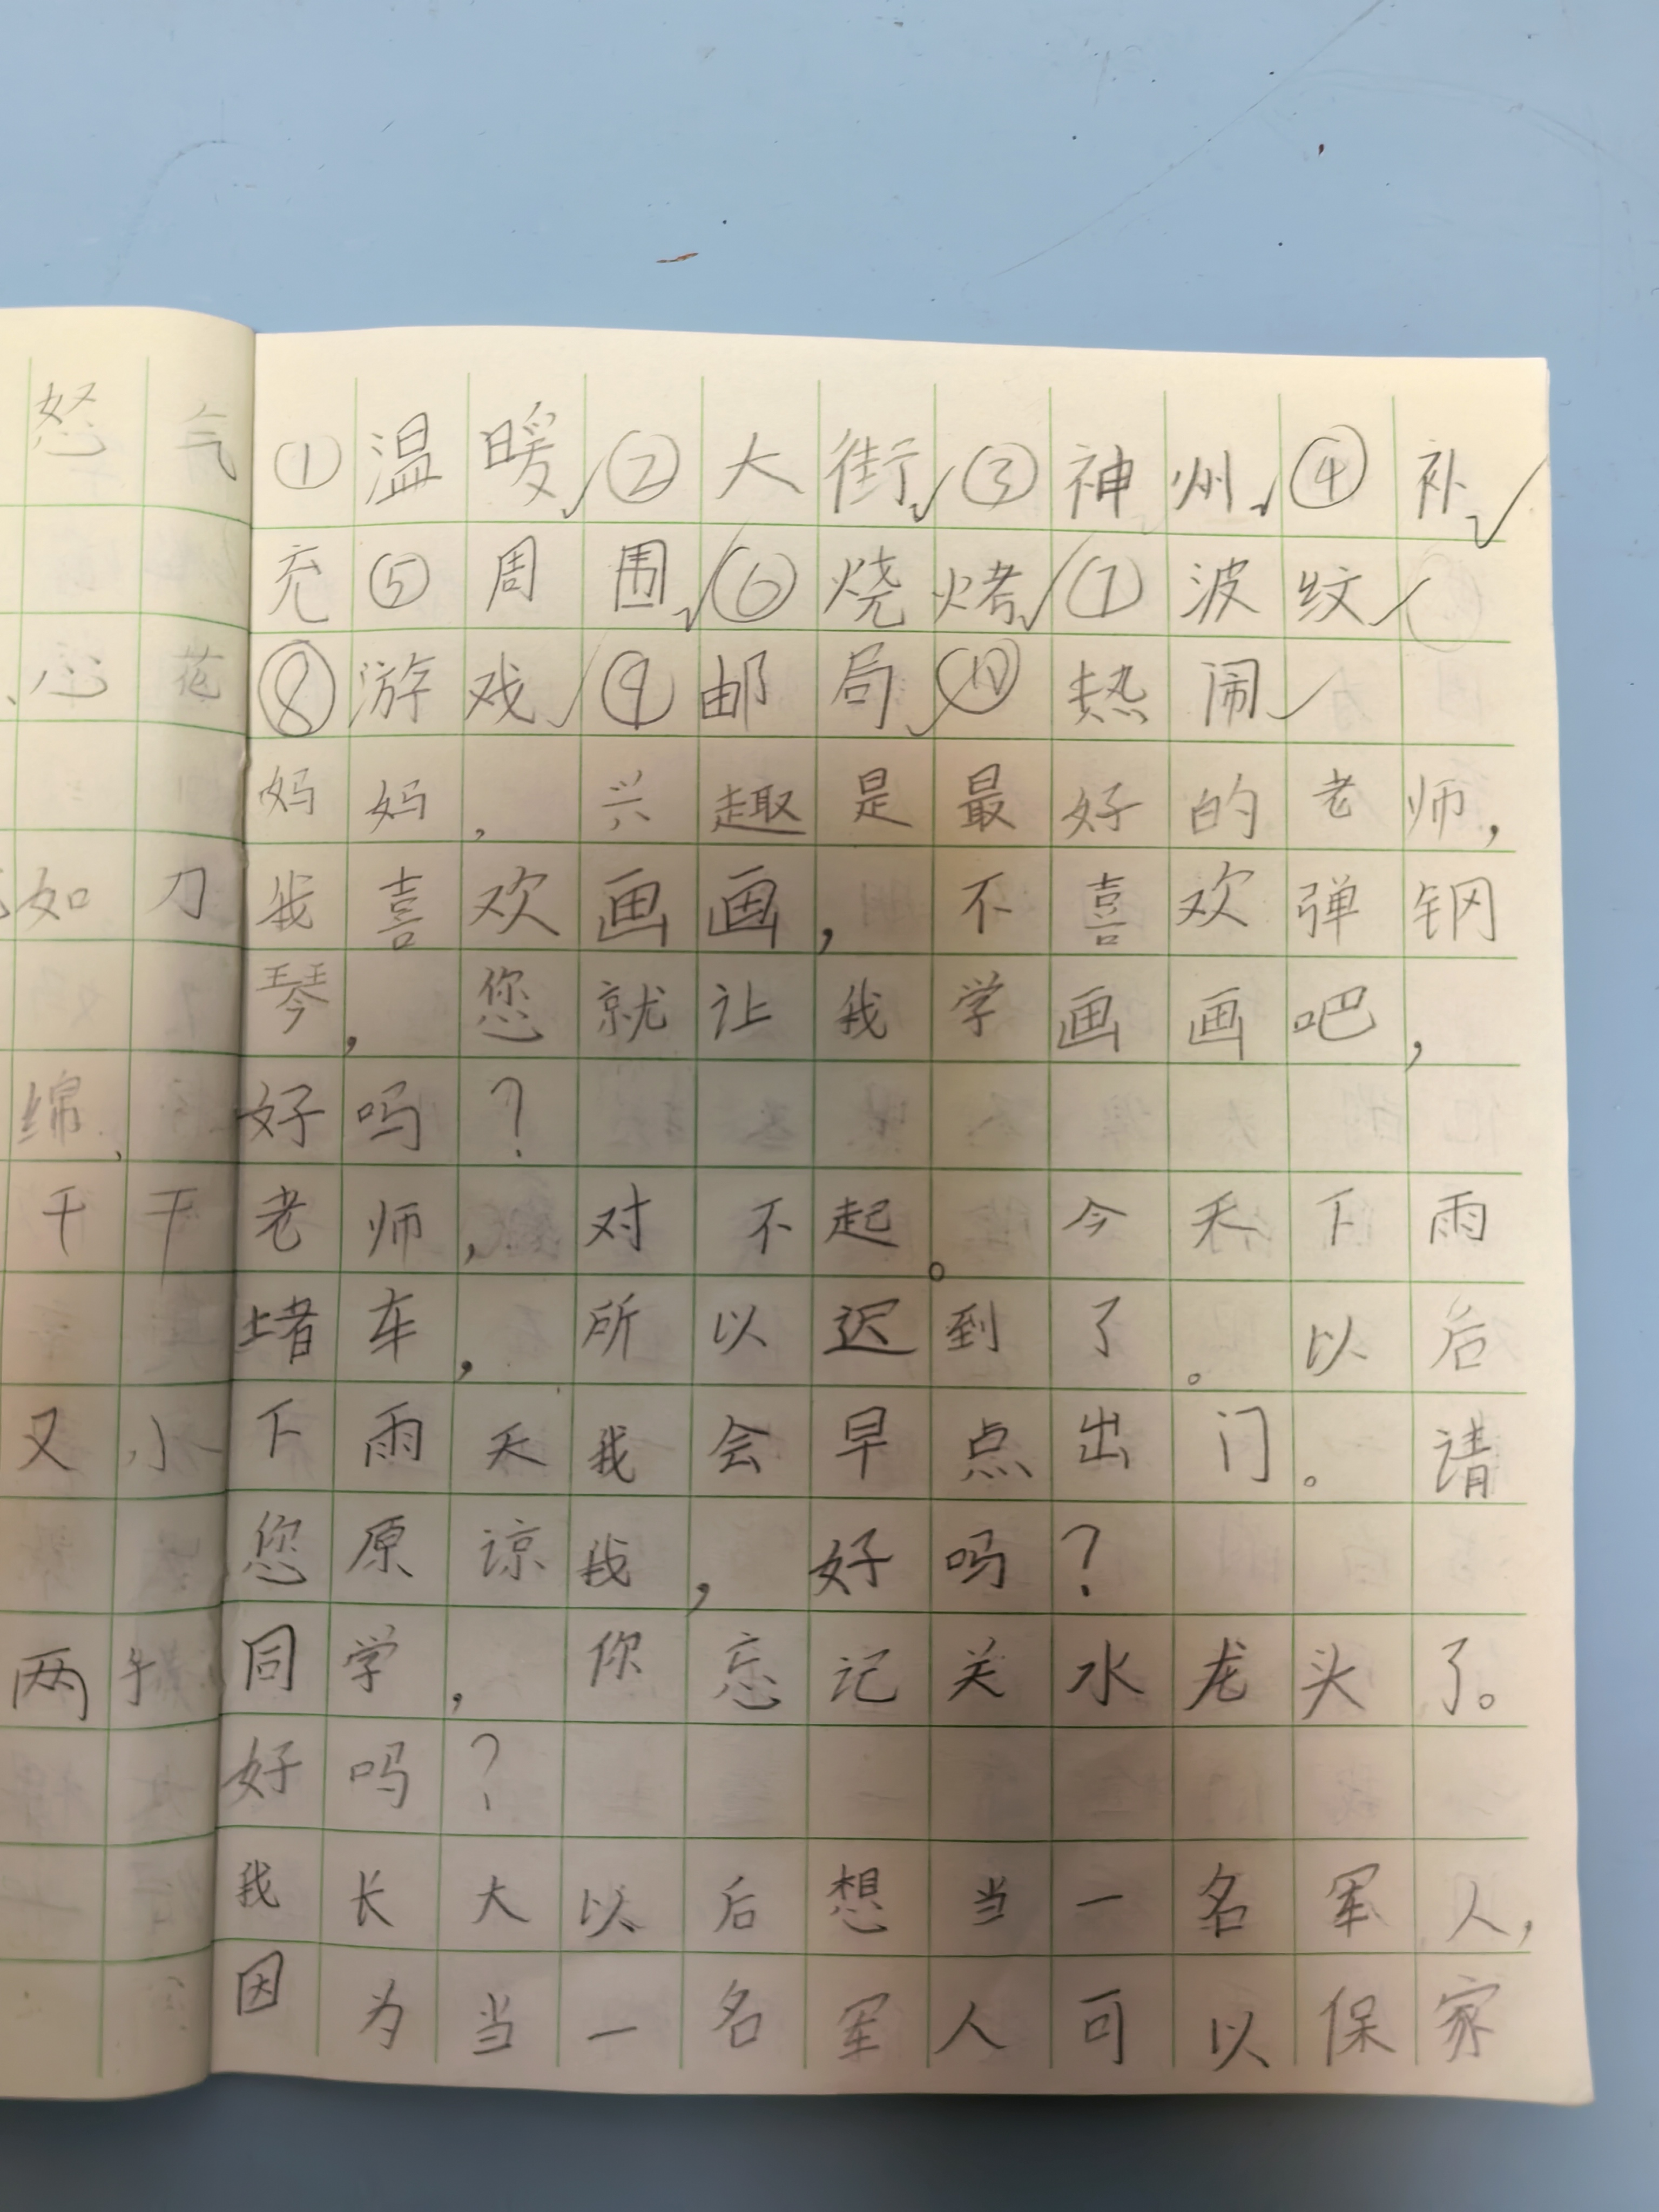 怒气
①温暖✓②大街✓③神州✓④补✓
充⑤周围✓⑥烧烤✓⑦波纹✓
⑧游戏✓⑨邮局✓⑩热闹✓
妈妈，兴趣是最好的老师，
如刀
我喜欢画画，不喜欢弹钢
琴，您就让我学画画吧，
绵、
好吗？
干干
老师，对不起。今天下雨
堵车，所以迟到了。以后
又小
下雨天我会早点出门。请
您原谅我，好吗？
两
同学，你忘记关水龙头了。
好吗？
我长大以后想当一名军人，
因为当一名军人可以保家